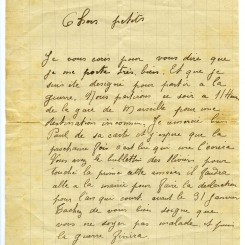 Chers petits
Je vous cours pour vous dire que
je me porte très bien. Et que je
suis désigné pour partir à la
guerre. Nous partons ce soir a 11 Heure
de la gare de Marseille pour une
destination inconnue. Je remercie
Paul de sa carte et j'espere que la
prochaine fois c'est lui que me
Vous avez le bulletin des
touché la prime cette il faudra
alle a la mairie pour faire la déclaration
pour l'an que avant le 31 janvier
de vous bien soigné que
vous ne soyez pas malade et
la guerre finira